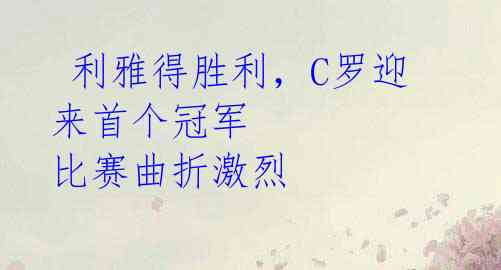 利雅得胜利，C罗迎
来首个冠军
比赛曲折激烈